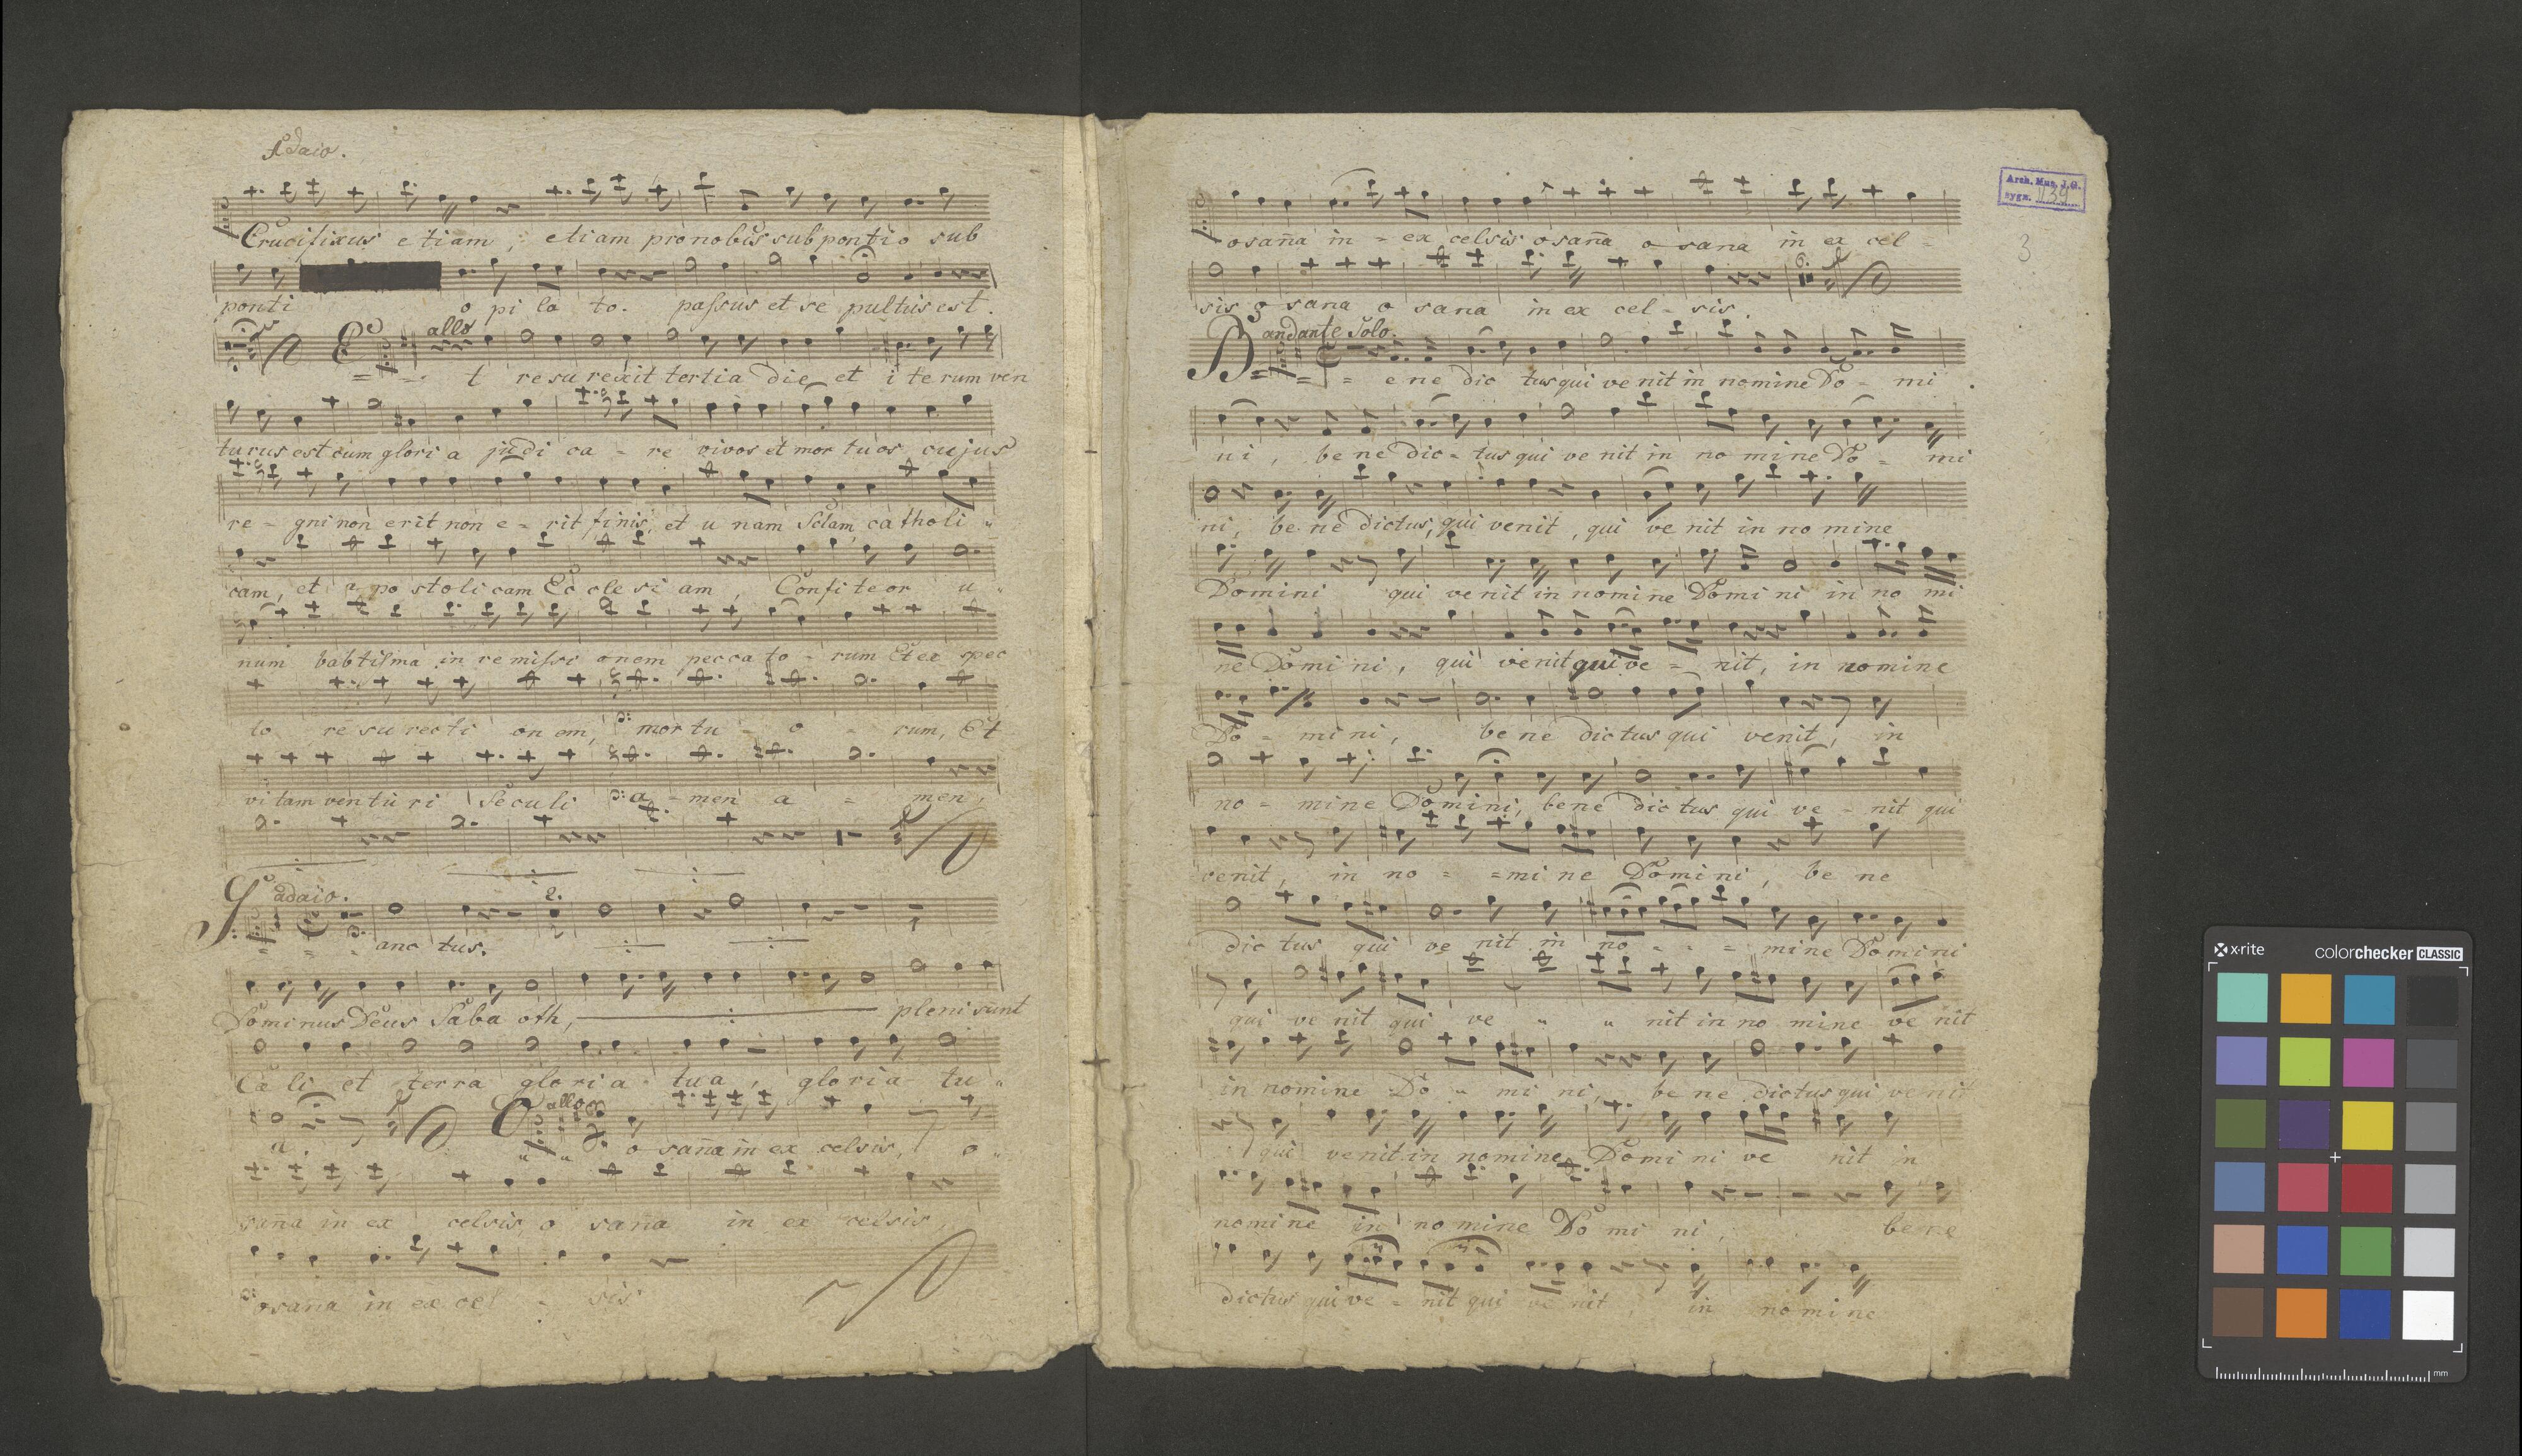 Adaio.
Crucifixus etiam, etiam pro nobis sub pontio sub
ponti o pi la to. passus et se pultus est.
allo
Et resurexit tertia die et i te rum ven
turus est cum glori a judi ca - re vivos et mor tuos cujus
re - gni non erit non e - rit finis, et u nam Sctam, ca tholi "
cam, et a po stoli cam Ec cle si am, Confi te or u "
num babtisma in re missi onem pecca to - rum Et ex spec
to re su recti on em, mor tu - o - rum, Et
vi tam ventu ri Seculi a - men a = men,
adaio.
2.
S = = - anc tus.
Dominus Deus Saba oth, pleni sunt
Cæ li et terra glori a tua, gloria tu "
allo
a. O " " o sana in ex celsis, o "
sana in ex celsis, o sana in ex celsis,
osana in ex cel - sis
Arch. Mus. J.G.
sygn. 1134
3
osana in - ex celsis osana o sana in ex cel =
6.
sis o sana o sana in ex cel - sis.
andante Solo.
B = = = e ne dic tus qui ve nit in nomine Do - mi .
ni, be ne dic - tus qui ve nit in no mine Do = mi
ni, be ne dictus, qui venit, qui ve nit in no mine
Domini qui ve nit in nomine Domi ni in no mi
ne Domi ni, qui venit qui ve = nit, in nomine
Do = mi ni, be ne dictus qui venit, in
no = mine Domini, bene dic tus qui ve - nit qui
venit, in no = = mi ne Domini, be ne
dic tus qui ve nit in no - - = mine Domini
qui ve nit qui ve " " nit in no mine ve nit
in nomine Do " mi ni, be ne dictus qui venit
qui venit in nomine Domi ni ve nit in
nomine in no mine Do mi ni, be ne
dictus qui ve = nit qui ve nit, in no mine
x-rite
colorchecker CLASSIC
mm